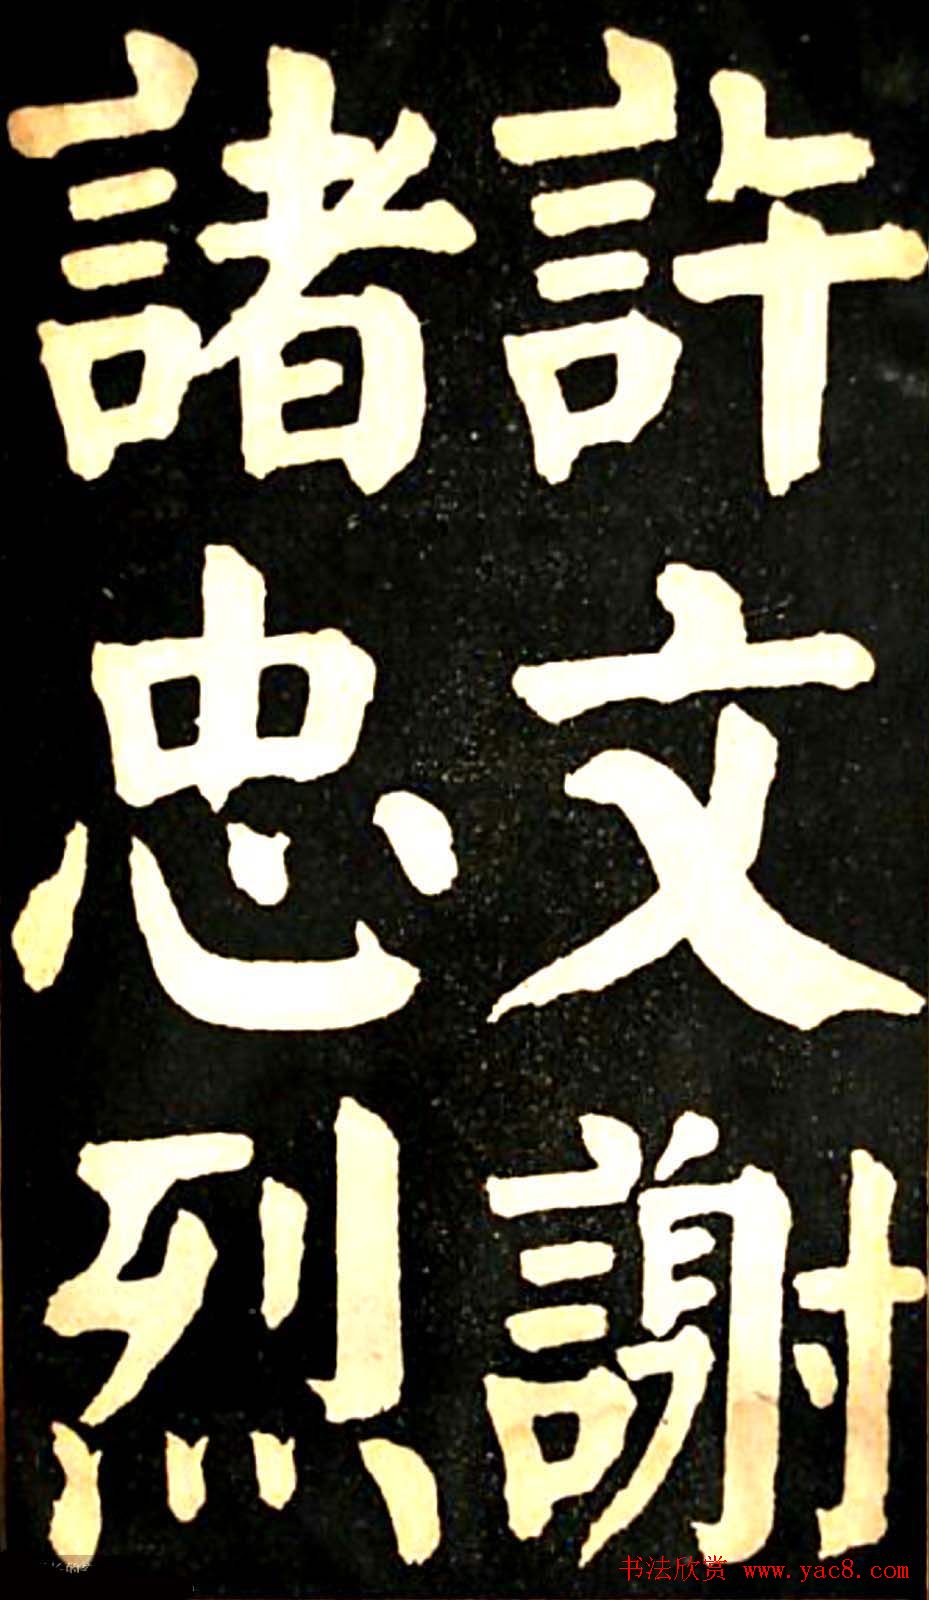 許文謝
諸忠烈
书法欣赏 www.yac8.com